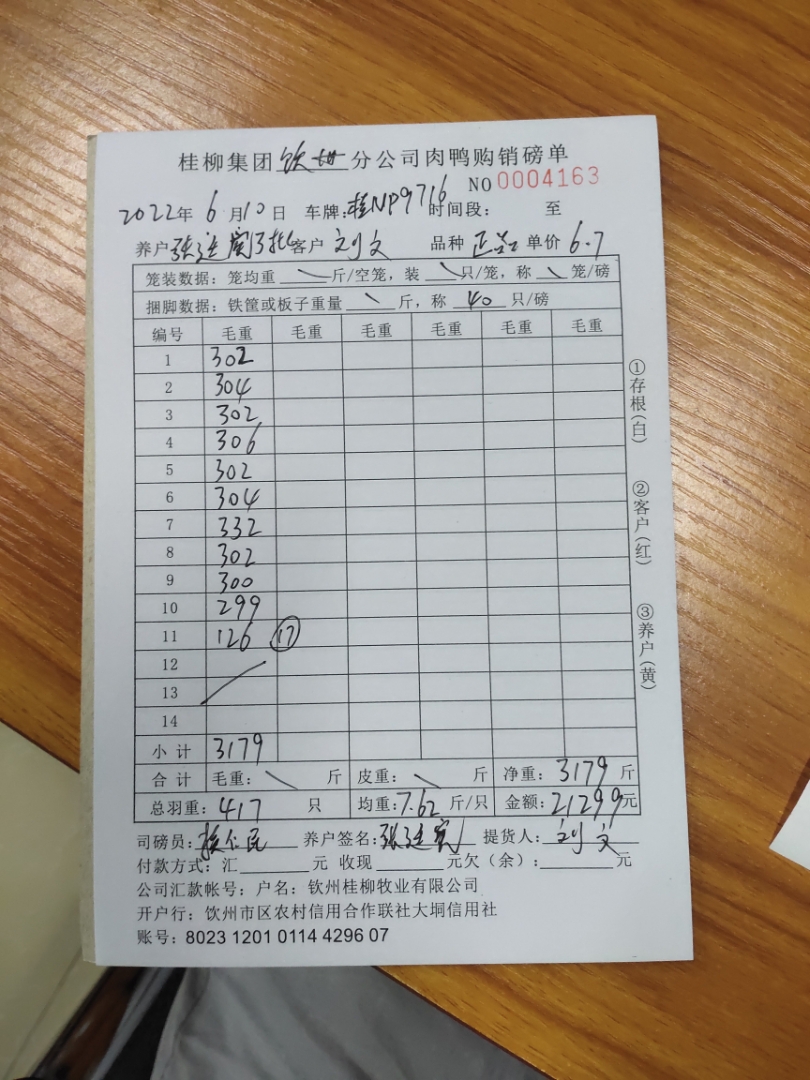 桂柳集团钦州分公司肉鸭购销磅单
NO 0004163
2022年6月10日 车牌:桂NP9716 时间段: 至
养户 张进 批 客户 刘文 品种 正品 单价 6.7
笼装数据:笼均重 \ 斤/空笼,装 \ 只/笼,称 \ 笼/磅
捆脚数据:铁筐或板子重量 \ 斤,称 40 只/磅
编号 毛重 毛重 毛重 毛重 毛重 毛重
1 302
2 304
3 302
4 306
5 302
6 304
7 332
8 302
9 300
10 299
11 126 ⑰
12
13
14
小计 3179
合计 毛重: \ 斤 皮重: \ 斤 净重: 3179 斤
总羽重: 417 只 均重: 7.62 斤/只 金额: 21299元
司磅员: 民 养户签名: 张进 提货人: 刘文
付款方式:汇 元 收现 元欠(余): 元
公司汇款帐号:户名:钦州桂柳牧业有限公司
开户行:饮州市区农村信用合作联社大垌信用社
账号:8023 1201 0114 4296 07
①存根(白)
②客户(红)
③养户(黄)